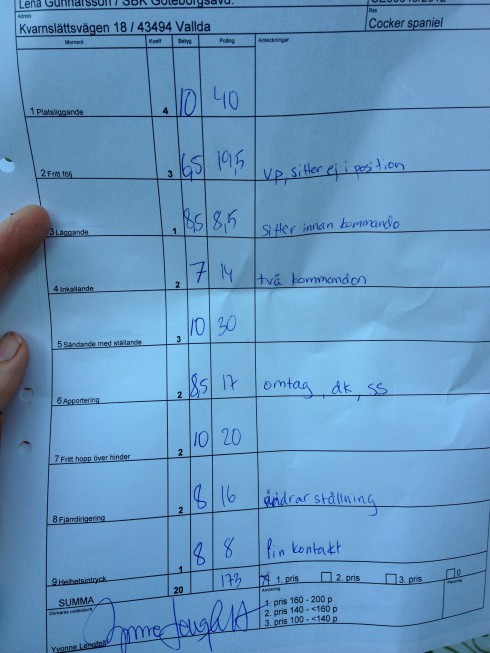 Lena Gunnarsson / SBK Göteborgsavd.
Adress
Kvarnslättsvägen 18 / 43494 Vallda
Ras
Cocker spaniel
Moment Koeff Betyg Poäng Anteckningar
1 Platsliggande 4 10 40
2 Fritt följ 3 6,5 19,5 VP, sitter ej i position
3 Läggande 1 8,5 8,5 sitter innan kommando
4 Inkallande 2 7 14 två kommandon
5 Sändande med ställande 3 10 30
6 Apportering 2 8,5 17 omtag, dk, ss
7 Fritt hopp över hinder 2 10 20
8 Fjärrdirigering 2 8 16 ändrar ställning
9 Helhetsintryck 1 8 8 Fin kontakt
SUMMA 20 173 1. pris 2. pris 3. pris 0
Domarens underskrift
Anvisning
1. pris 160 - 200 p
2. pris 140 - <160 p
3. pris 100 - <140 p